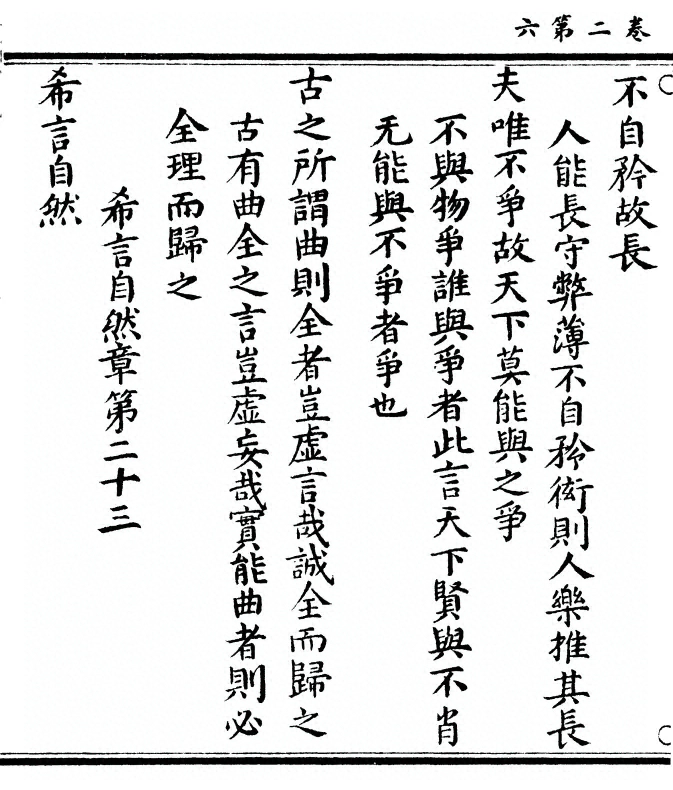 卷二第六
不自矜故長
人能長守弊薄不自矜衒則人樂推其長
夫唯不爭故天下莫能與之爭
不與物爭誰與爭者此言天下賢與不肖
无能與不爭者爭也
古之所謂曲則全者豈虛言哉誠全而歸之
古有曲全之言豈虛妄哉實能曲者則必
全理而歸之
希言自然章第二十三
希言自然